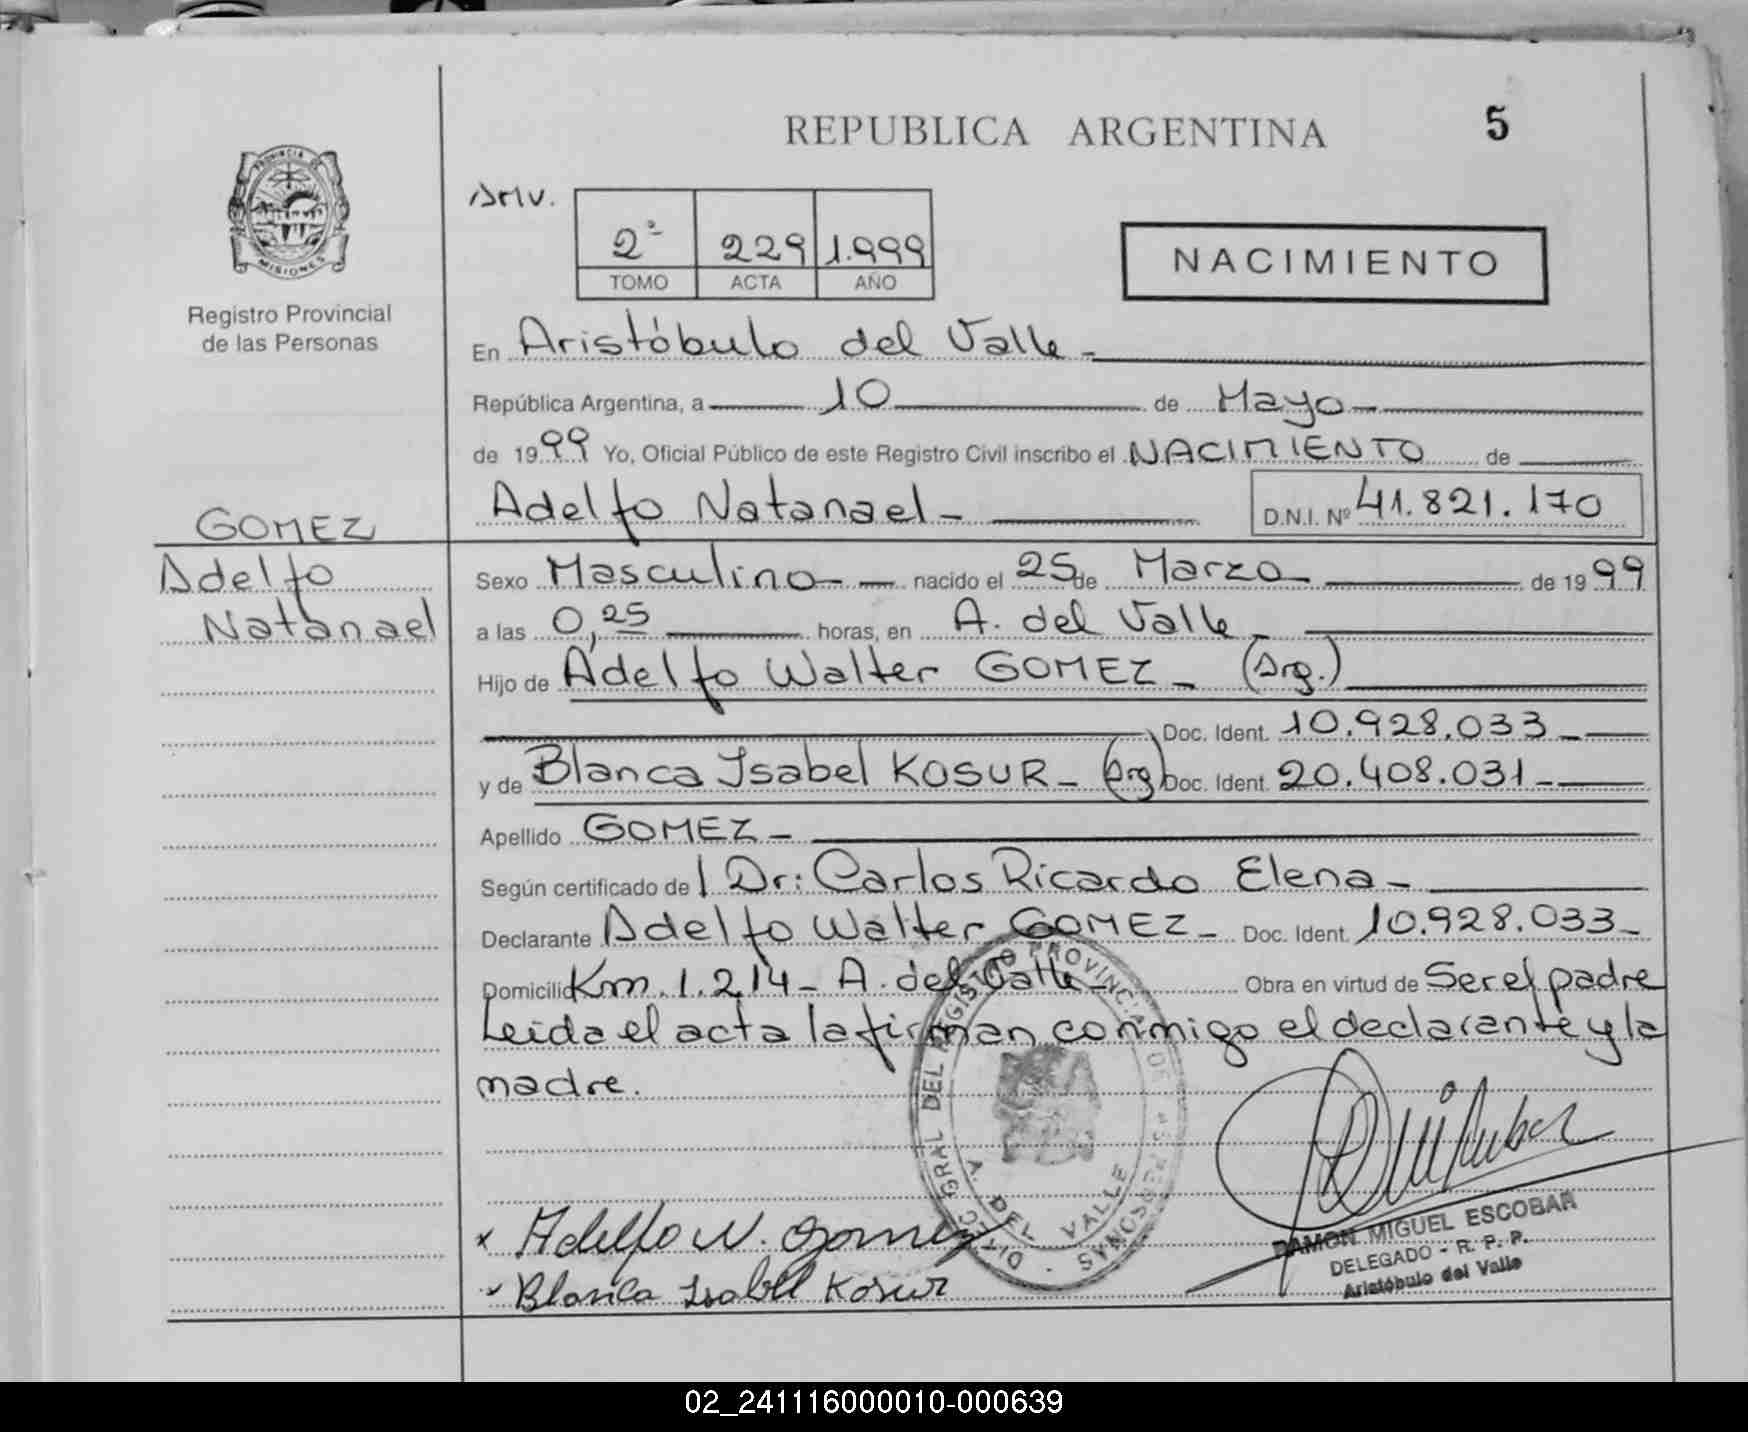 REPUBLICA ARGENTINA
5
PROVINCIA DE
MISIONES
Registro Provincial
de las Personas
2º 229 1.999
TOMO ACTA AÑO
NACIMIENTO
En Aristóbulo del Valle -
República Argentina, a 10 de Mayo
de 1999 Yo, Oficial Público de este Registro Civil inscribo el NACIMIENTO de
Adelfo Natanael - D.N.I. Nº 41.821.170
GOMEZ
Adelfo
Natanael
Sexo Masculino nacido el 25 de Marzo de 1999
a las 0,25 horas, en A. del Valle
Hijo de Adelfo Walter GOMEZ - (Arg.)
Doc. Ident. 10.928.033 -
y de Blanca Isabel KOSUR - (Arg) Doc. Ident. 20.408.031 -
Apellido GOMEZ -
Según certificado de Dr: Carlos Ricardo Elena -
Declarante Adelfo Walter GOMEZ - Doc. Ident. 10.928.033 -
Domicilio Km. 1.214 - A. del Valle - Obra en virtud de Ser el padre
Leida el acta la firman conmigo el declarante y la
madre.
DIREC. GRAL DEL REGISTRO PROVINCIAL DE LAS PERSONAS
A. DEL VALLE
x Adelfo W. Gomez
Blanca Isabel Kosur
RAMON MIGUEL ESCOBAR
DELEGADO - R. P. P.
Aristóbulo del Valle
02_241116000010-000639